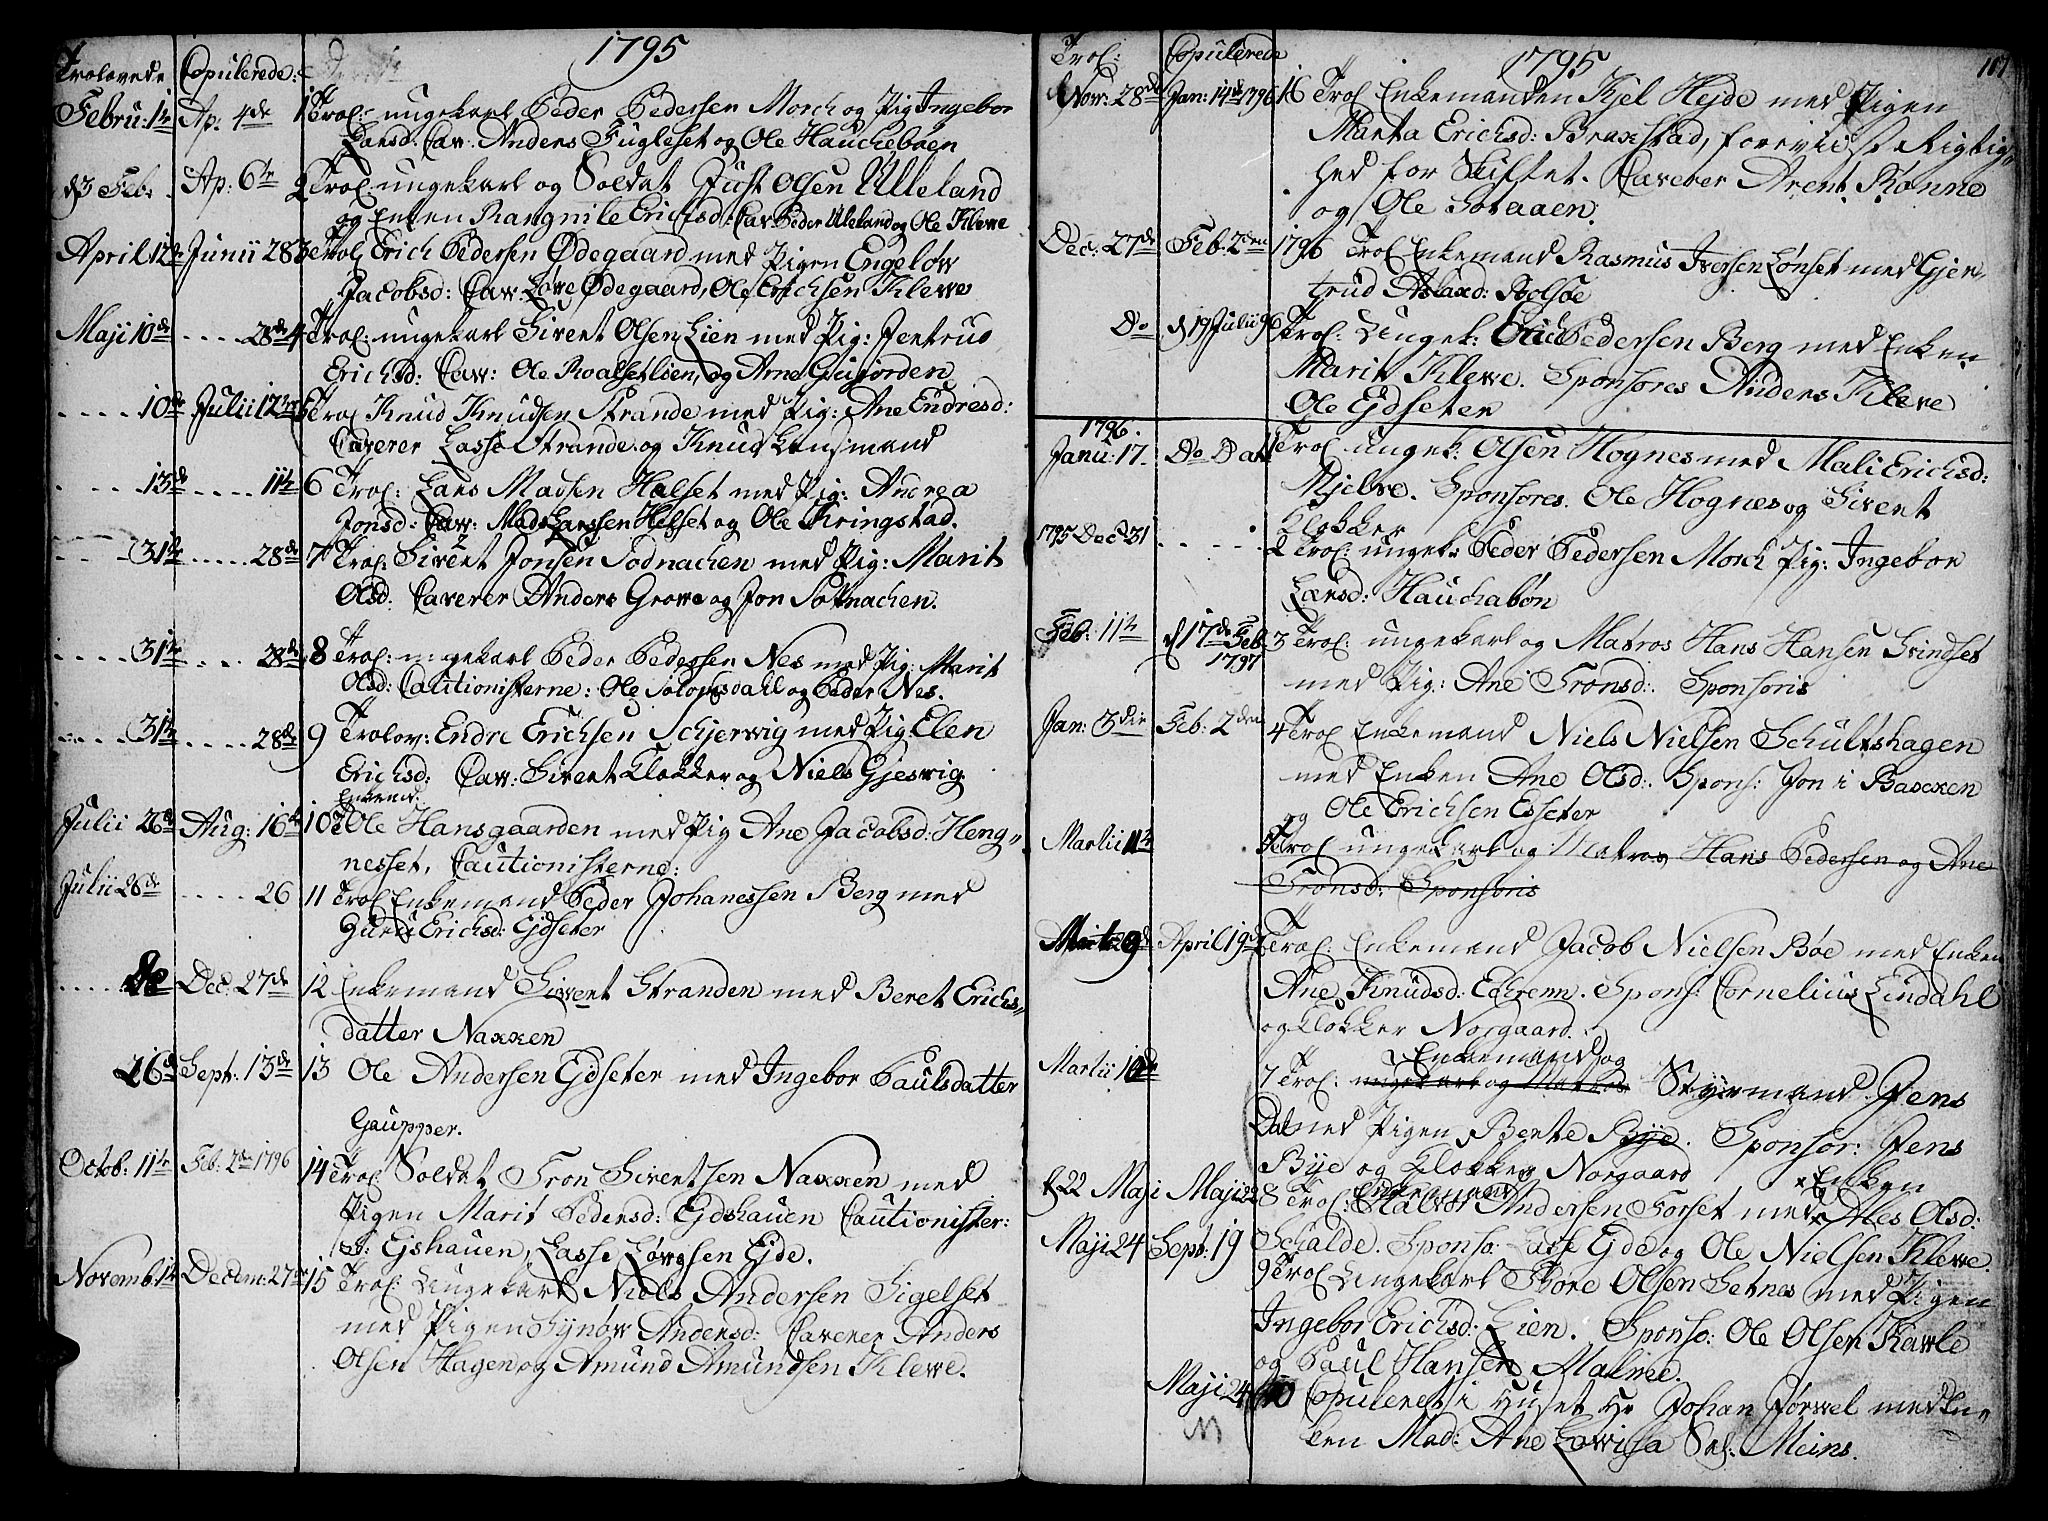 1795
Trolovede Copulerede:
Febru: 1te Ap: 4de 1 Trol: ungekarl Peder Pedersen Morch og Pig Ingebor
Larsd: Cav: Anders Fugleset og Ole Hauchebøen
d 3 Feb: Ap: 6te 2 Trol: ungekarl og Soldat Just Olsen Ulleland
og Enken Rangnile Erichsd: Cav: Peder Ulleland og Ole Klewe
April 12te Junii 28 3 Trol Erich Pedersen Ødegaard med Pigen Engeløw
Jacobsd: Caw: Løve Ødegaard, Ole Erichsen Klewe
Maji 10de .... 28de 4 Trol: ungekarl Sivert Olsen Lien med Pig: Jentrud
Erichsd: Caw: Ole Roalsetlien, og Arne Gujorden
.... 10de Julii 12te 5 Trol Knud Knudsen Strande med Pig: Ane Endresd:
Caverer Lasse Strande og Knud Lensmand
.... 13de .... 11te 6 Trol: Lars Madsen Halset med Pig: Andrea
Jonsd: Caw: Mads Larssen Helset og Ole Kringstad.
.... 31te .... 28de 7 Trol: Sivert Jonsen Sodnachen med Pig: Marit
Olsd: Caverer Anders Growe og Jon Sottnachen.
.... 31te .... 28de 8 Trol: ungekarl Peder Pederssen Nes med Pig: Marit
Olsd: Cautionisterne: Ole Solophsdahl og Peder Nes.
.... 31te .... 28de 9 Trolov: Endre Erichsen Schjerwig med Pig: Elen
Erichsd: Caw: Sivert Klokker og Niels Gjeswig
Enkemd:
Julii 26de Aug: 16te 10 Ole Hansgaarden med Pig Ane Jacobsd: Heng-
nesset, Cautionisterne:
Julii 26de .... 26 11 Trol Enkemand Peder Johanessen Berg med
Guru Erichsd: Ejdseter
.... Dec: 27de 12 Enkemand Sivert Stranden med Beret Erichs-
datter Naxxen
26de Sept: 13de 13 Ole Andersen Ejdseter med Ingebor Paulsdatter
Gaupper.
Octob: 11te Feb: 2den 1796 14 Trol: Soldat Tron Sivertsen Naxxen med
Pigen Marit Pedersd: Ejdshauen Cautionister:
Ejshauen, Lasse Løwsen Ejde.
Novemb: 1te Decem: 27de 15 Trol: Ungekarl Niels Andersen Sigelset
med Pigen Synøw Andersd: Caverer Anders
Olsen Hagen og Amund Amundsen Klewe.
1795
Trol: Copulerede
Nov: 28de Jan: 14de 1796 16 Trol Enkemanden Kjel Hejde med Pigen
Marta Erichsd: Braxstad, foreviist Rigtig-
hed for Skiftet. Caverer Arent Rønne
og Ole Soraaen.
Dec: 27de Feb: 2den 1796 Trol Enkemand Rasmus Iversen Lønset med Gjer-
trud Aslaxd: Bolsøe
Do d 19 Julii 96 Trol: Ungek: Erich Pedersen Berg med Enken
Marit Klewe. Sponsores Anders Kleve
Ole Ejdseter
1796.
Janu: 17. Do Dat: 1 Trol: ungek: Olsen Hognes med Mali Erichsd:
Mjelve. Sponsores. Ole Hognes og Sivert
Klokker
1795 Dec: 31 .... 2 Trol: ungek: Peder Pedersen Morch Pig: Ingebor
Larsd: Hauchabøn
Feb: 11te d 17de Feb: 1797 3 Trol: ungekarl og Matros Hans Hansen Grindset
med Pig: Ane Tronsd: Sponsoris
Jan: 3die Feb: 2den 4 Trol Enkemand Niels Nielsen Schultshagen
med Enken Ane Olsd: Spons: Jon i Baxxen
og Ole Erichsen Esseter
Martii 11te 5 Trol ungekarl og Matros Hans Pedersen og Ane
Tronsd: Sponsoris
Marti 9de April 19de Trol: Enkemand Jacob Nielsen Bøe med Enken
Ane Knudsd: Echrenn. Spons: Cornelius Lindahl
og Klokker Norgaard.
Martii 10de 7 Trol: ungekarl og Matros Enkemand og Styrmand Jens
Dal med Pigen Berte Bye. Sponsor: Jens
Bye og Klokker Norgaard
d 22 Maji Maji 22 8 Trol: Enkemand Halvor Andersen Forset med Enken Ales Olsd:
Schalde. Sponso: Lasse Ejde og Ole Nielsen Klewe.
Maji 24 Sept: 19 9 Trol Ungekarl Tore Olsen Setnes med Pigen
Ingebor Erichsd: Lien. Sponso: Ole Olsen Kawle
og Paul Hansen Malmee.
Maji 24 10 Copuleret i Huset Hr Johan Jørwel med En-
ken Mad: Ane Lowisa Sal: Meins.